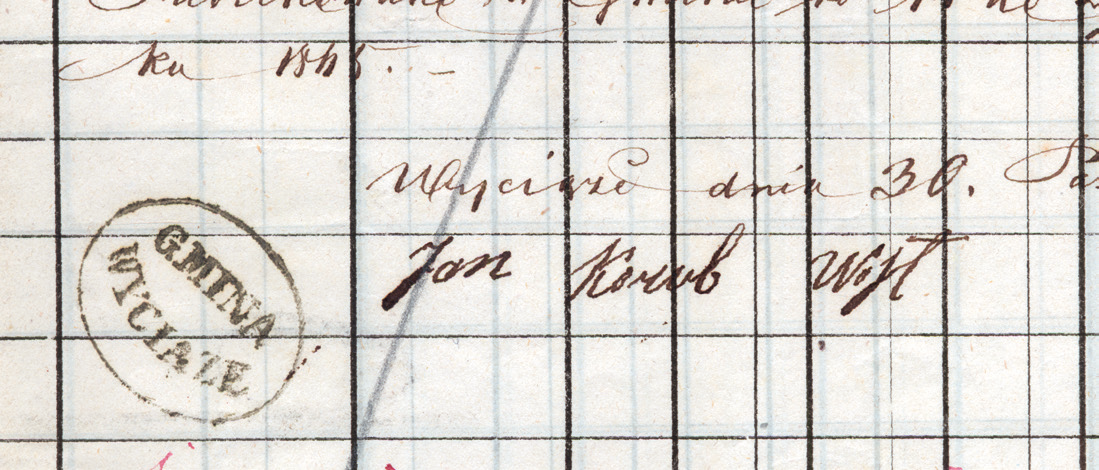 ku 1845.
Wyciąże dnia 30.
Jan Korub Wójt
GMINA
WYCIAZE